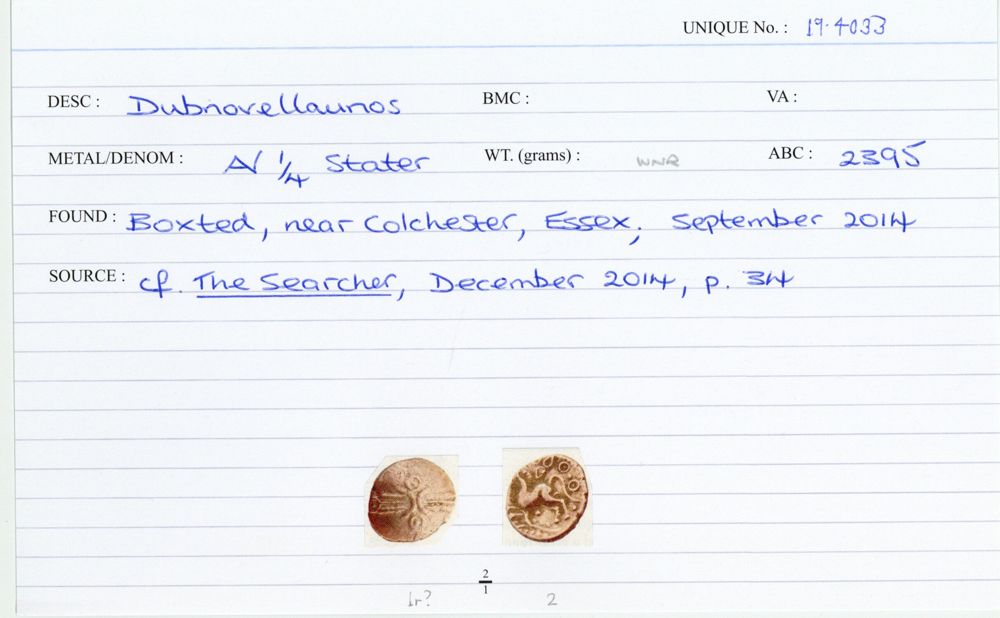 UNIQUE No. : 19.4033
DESC : Dubnovellaunos BMC : VA :
METAL/DENOM : AV 1/4 Stater WT. (grams) : WNR ABC : 2395
FOUND : Boxted, near Colchester, Essex; September 2014
SOURCE : cf. The Searcher, December 2014, p. 34
2/1
1r? 2